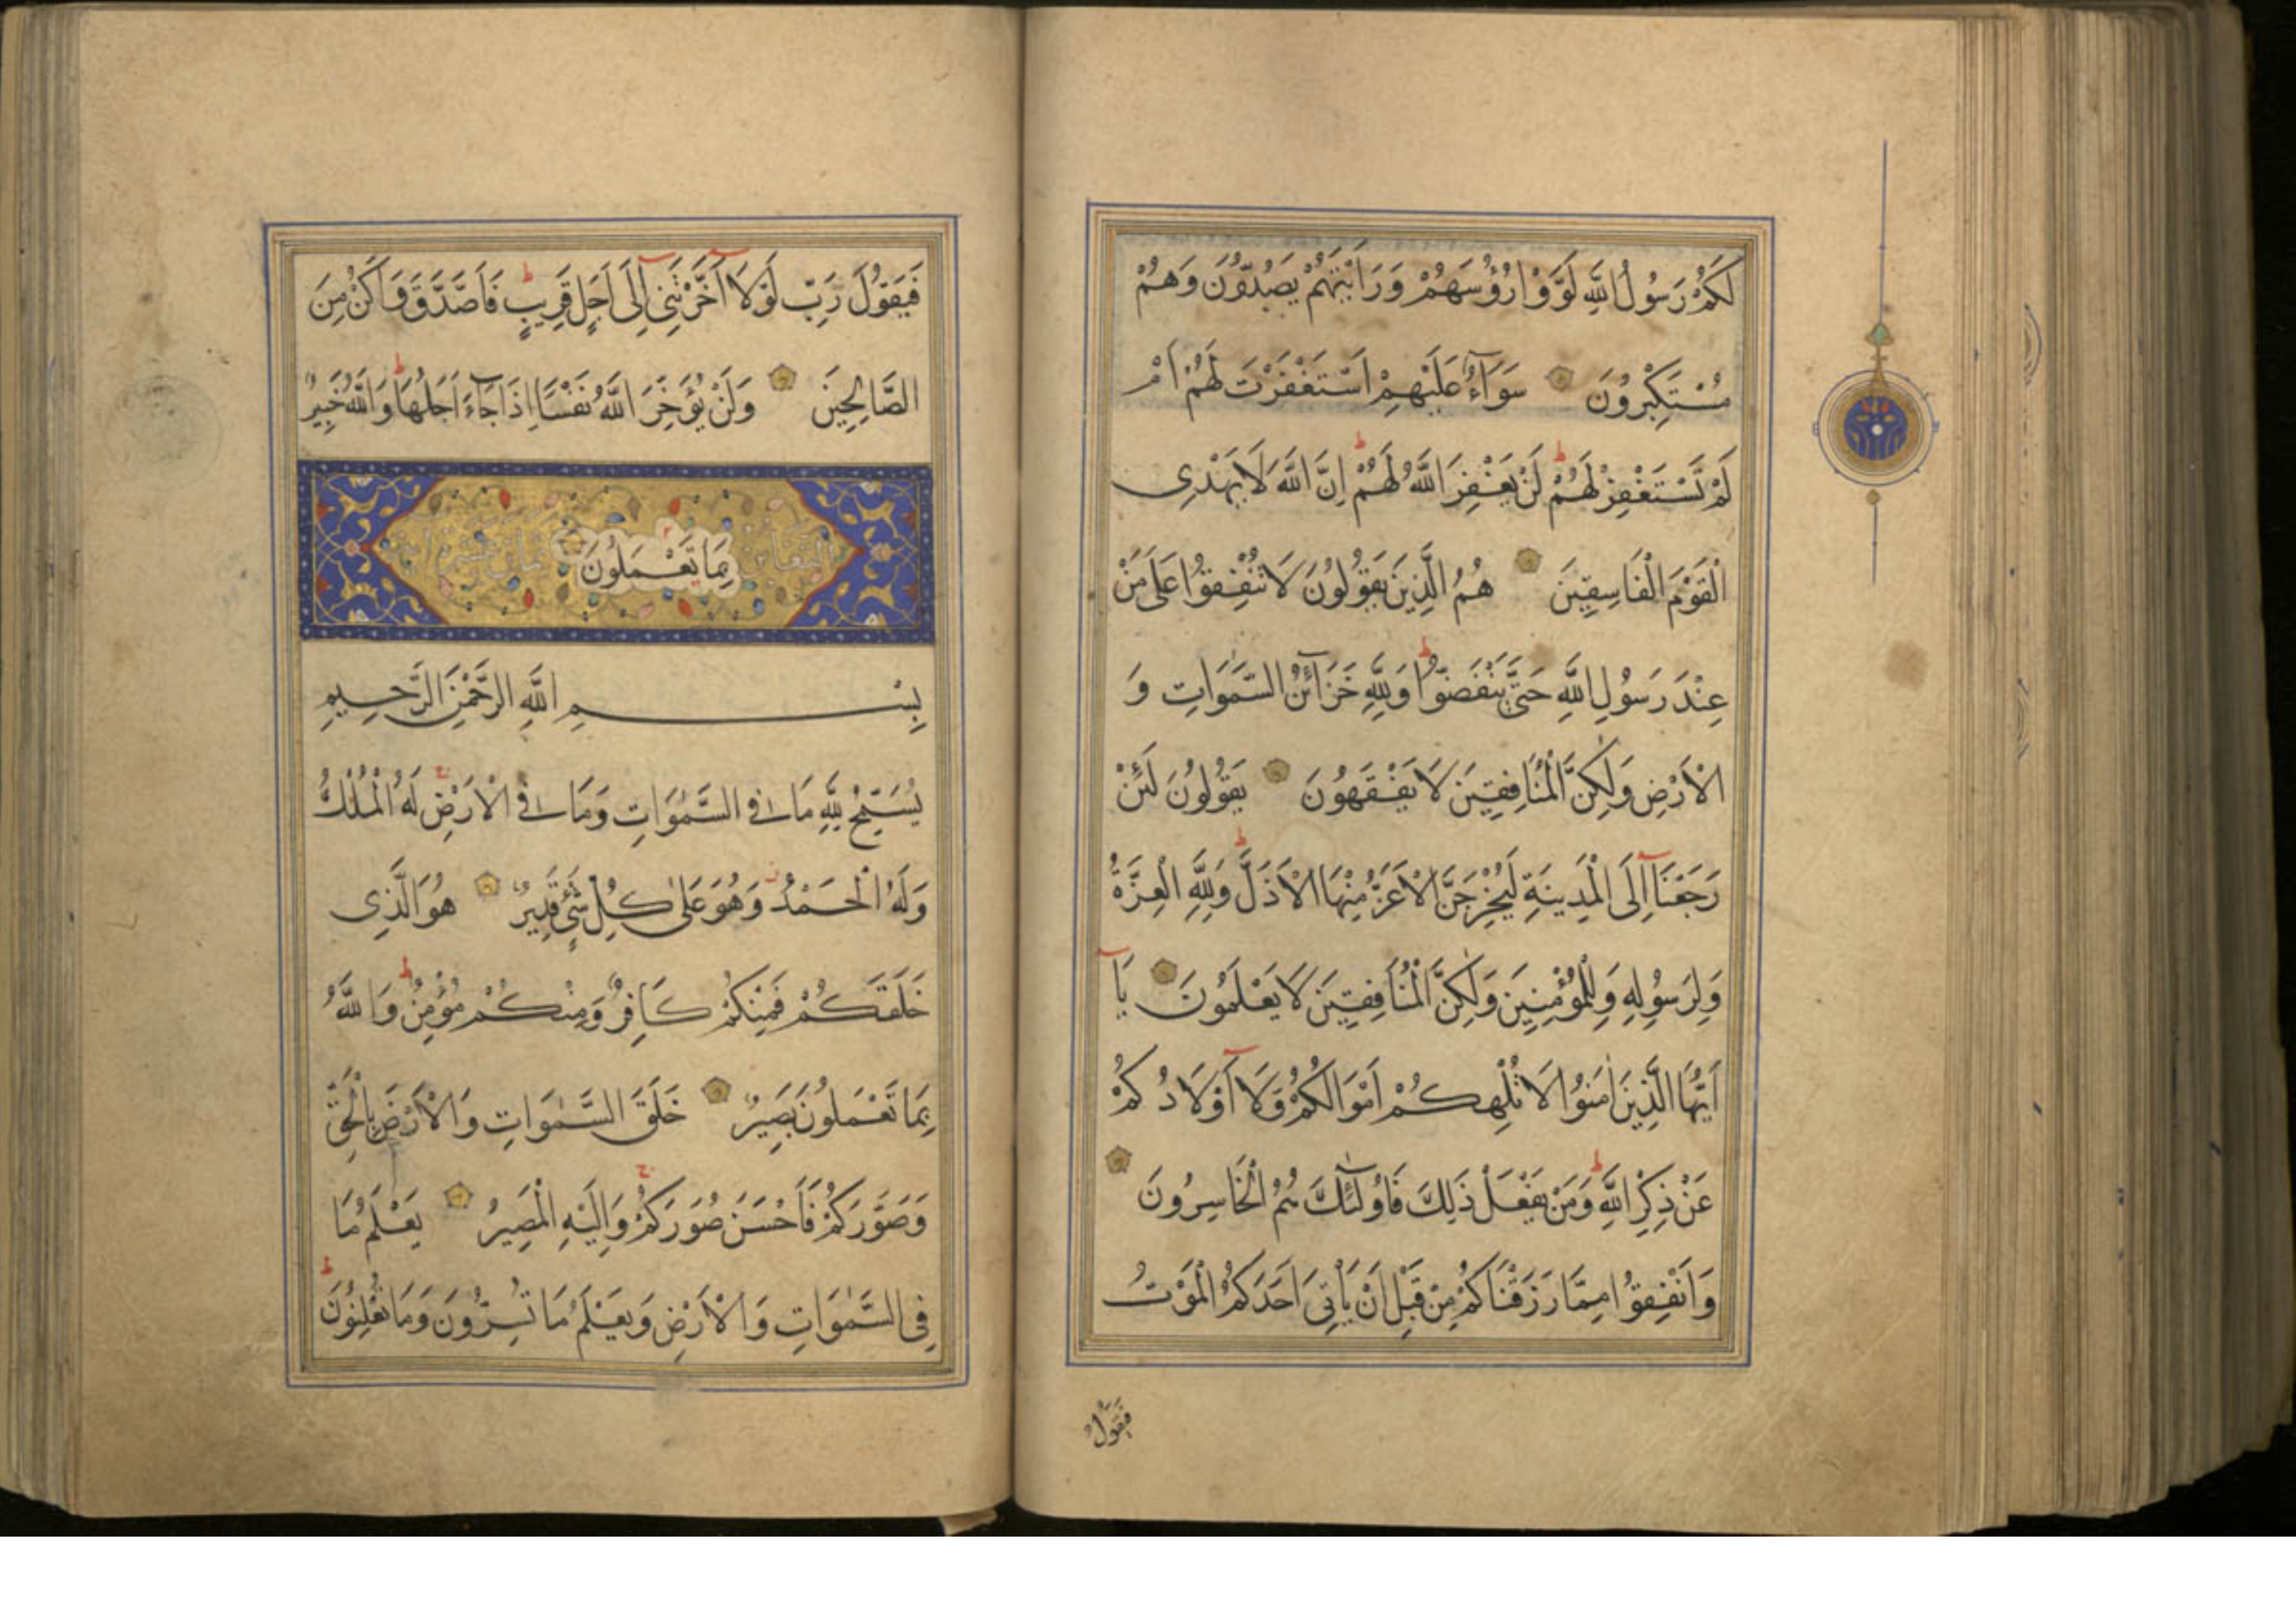 لَكُمْ رَسُولُ اللَّهِ لَوَّوْا رُؤُسَهُمْ وَرَاَيْتَهُمْ يَصُدُّونَ وَهُمْ
مُسْتَكْبِرُونَ سَوَآءٌ عَلَيْهِمْ اَسْتَغْفَرْتَ لَهُمْ اَمْ
لَمْ تَسْتَغْفِرْ لَهُمْ لَنْ يَغْفِرَ اللَّهُ لَهُمْ اِنَّ اللَّهَ لَا يَهْدِى
الْقَوْمَ الْفَاسِقِينَ هُمُ الَّذِينَ يَقُولُونَ لَا تُنْفِقُوا عَلَى مَنْ
عِنْدَ رَسُولِ اللَّهِ حَتَّى يَنْفَضُّوا وَلِلَّهِ خَزَآئِنُ السَّمٰوَاتِ وَ
الْاَرْضِ وَلٰكِنَّ الْمُنَافِقِينَ لَا يَفْقَهُونَ يَقُولُونَ لَئِنْ
رَجَعْنَآ اِلَى الْمَدِينَةِ لَيُخْرِجَنَّ الْاَعَزُّ مِنْهَا الْاَذَلَّ وَلِلَّهِ الْعِزَّةُ
وَلِرَسُولِهِ وَلِلْمُؤْمِنِينَ وَلٰكِنَّ الْمُنَافِقِينَ لَا يَعْلَمُونَ يَآ
اَيُّهَا الَّذِينَ اٰمَنُوا لَا تُلْهِكُمْ اَمْوَالُكُمْ وَلَآ اَوْلَادُكُمْ
عَنْ ذِكْرِ اللَّهِ وَمَنْ يَفْعَلْ ذَلِكَ فَاُولٰئِكَ هُمُ الْخَاسِرُونَ
وَاَنْفِقُوا مِمَّا رَزَقْنَاكُمْ مِنْ قَبْلِ اَنْ يَاْتِىَ اَحَدَكُمُ الْمَوْتُ
فَيَقُولَ
فَيَقُولَ رَبِّ لَوْلَآ اَخَّرْتَنِىٓ اِلَى اَجَلٍ قَرِيبٍ فَاَصَّدَّقَ وَاَكُنْ مِنَ
الصَّالِحِينَ وَلَنْ يُؤَخِّرَ اللَّهُ نَفْسًا اِذَا جَآءَ اَجَلُهَا وَاللَّهُ خَبِيرٌ
بِمَا تَعْمَلُونَ
بِسْمِ اللَّهِ الرَّحْمٰنِ الرَّحِيمِ
يُسَبِّحُ لِلَّهِ مَا فِى السَّمٰوَاتِ وَمَا فِى الْاَرْضِ لَهُ الْمُلْكُ
وَلَهُ الْحَمْدُ وَهُوَ عَلٰى كُلِّ شَىْءٍ قَدِيرٌ هُوَ الَّذِى
خَلَقَكُمْ فَمِنْكُمْ كَافِرٌ وَمِنْكُمْ مُؤْمِنٌ وَاللَّهُ
بِمَا تَعْمَلُونَ بَصِيرٌ خَلَقَ السَّمٰوَاتِ وَالْاَرْضَ بِالْحَقِّ
وَصَوَّرَكُمْ فَاَحْسَنَ صُوَرَكُمْ وَاِلَيْهِ الْمَصِيرُ يَعْلَمُ مَا
فِى السَّمٰوَاتِ وَالْاَرْضِ وَيَعْلَمُ مَا تُسِرُّونَ وَمَا تُعْلِنُونَ